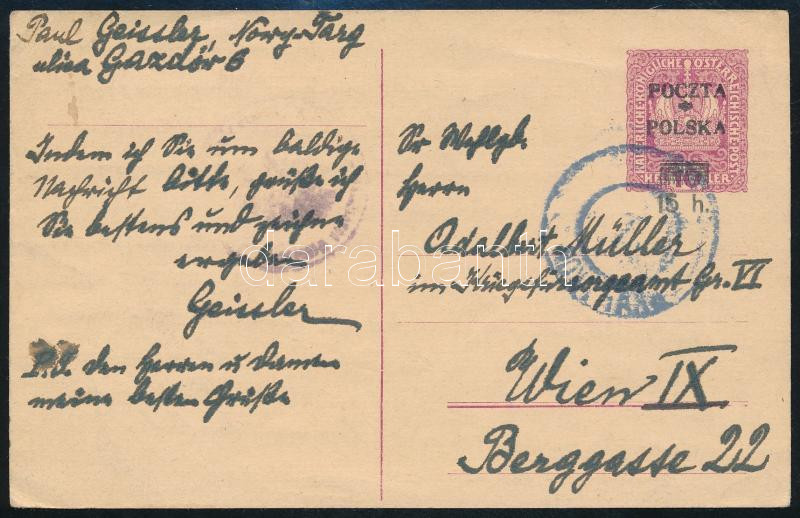 Paul Geissler, Nowy-Targ
ulica Gazdór 6
Indem ich Sie um baldige
Nachricht bitte, grüße ich
Sie bestens und zeichne
Geissler
den Herren u Damen
meine besten Grüße
KAISERLICHE KÖNIGLICHE ÖSTERREICHISCHE POST
POCZTA
POLSKA
HELLER
15 h.
Sr Wohlgb.
Herrn
Adalbert Müller
im Kriegsfürsorgeamt Gr. VI
Wien IX
Berggasse 22
darabanth